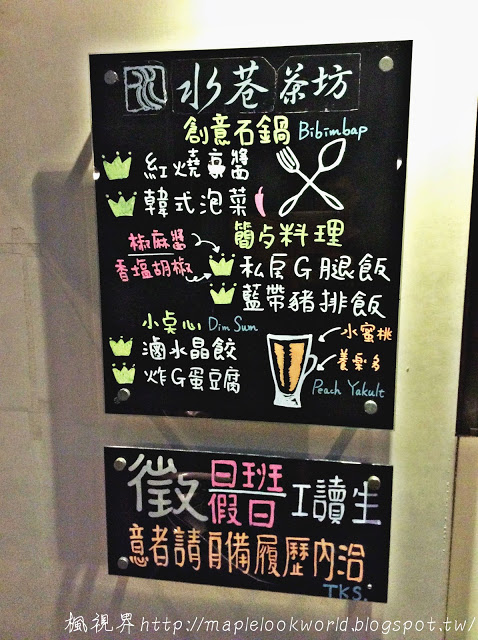 水巷茶坊
創意石鍋 Bibimbap
紅燒豪醬
韓式泡菜
簡占料理
椒麻醬
香塩胡椒
私房G腿飯
藍帶豬排飯
小桌心 Dim Sum
滷水晶餃
炸G蛋豆腐
水蜜桃
養樂多
Peach Yakult
徵 日班 假日 工讀生
意者請自備履歷內洽
TKS.
楓視界http://maplelookworld.blogspot.tw/